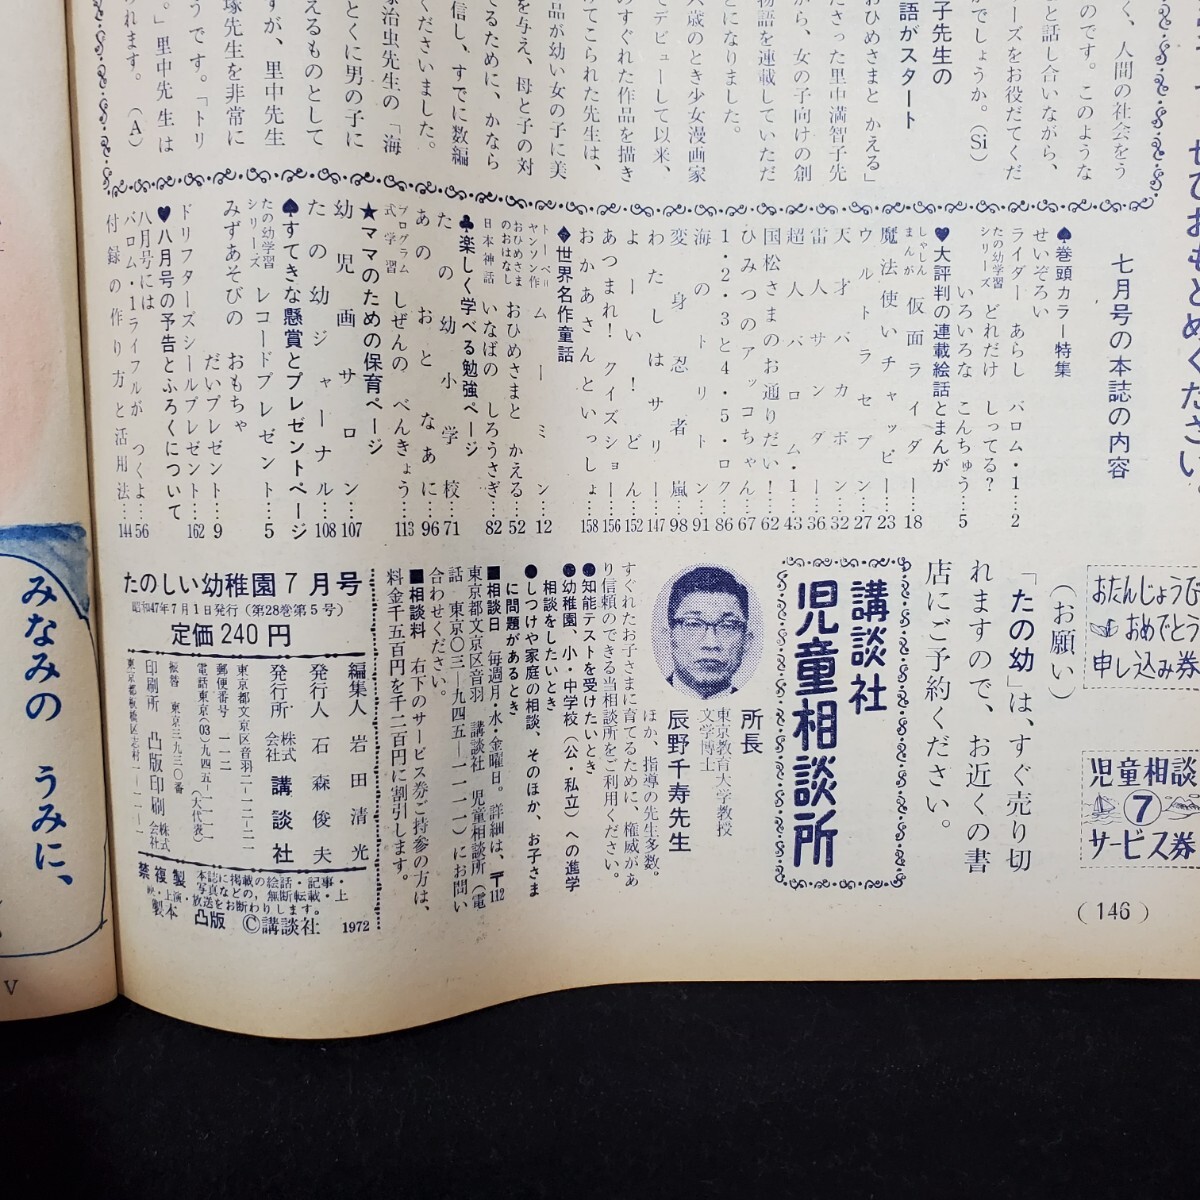 ぜひおもとめください。
く、人間の社会をう
のです。このような
と話し合いながら、
ーズをお役だてくだ
でしょうか。(Si)
子先生の
語がスタート
おひめさまと かえる」
ださった里中満智子先
がら、女の子向けの創
物語を連載していただ
とになりました。
六歳のとき少女漫画家
てデビューして以来、
のすぐれた作品を描き
けてこられた先生は、
品が幼い女の子に美
を与え、母と子の対
てるために、かなら
信し、すでに数編
くださいました。
家治虫先生の「海
とくに男の子に
えるものとして
すが、里中先生
塚先生を非常に
うです。「トリ
。」里中先生は
れます。(A)
七月号の本誌の内容
♠巻頭カラー特集
せいぞろい
ライダー あらし バロム・1…2
たの幼学習シリーズ どれだけ しってる?
いろいろな こんちゅう…5
♥大評判の連載絵話とまんが
しゃしんまんが 仮面ライダー…18
魔法使いチャッピー…23
ウルトラセブン…27
天才バカボン…32
雷人サンダー…36
超人バロム・1…43
国松さまのお通りだい!…62
ひみつのアッコちゃん…67
1・2・3と4・5・ロク…86
海のトリトン…91
変身忍者嵐…98
わたしはサリー…147
よーい!どん…152
あつまれ!クイズショー…156
おかあさんといっしょ…158
♦世界名作童話
トーベ＝ヤンソン作 ムーミン…12
おひめさまのおはなし おひめさまと かえる…52
日本神話 いなばの しろうさぎ…82
♣楽しく学べる勉強ページ
たの幼小学校…71
あのおとなあに…96
プログラム式学習 しぜんの べんきょう…113
★ママのための保育ページ
幼児画サロン…107
たの幼ジャーナル…108
♠すてきな懸賞とプレゼントページ
たの幼学習シリーズ レコードプレゼント…5
みずあそびの おもちゃ
だいプレゼント…9
ドリフターズシールプレゼント…162
♥八月号の予告とふろくについて
八月号には つくよ…56
バロム・1ライフルが
付録の作り方と活用法…144
おたんじょうび
おめでとう
申し込み券
児童相談
7
サービス券
(お願い)
「たの幼」は、すぐ売り切
れますので、お近くの書
店にご予約ください。
講談社
児童相談所
所長
東京教育大学教授
文学博士
辰野千寿先生
ほか、指導の先生多数。
すぐれたお子さまに育てるために、権威があ
り信頼のできる当相談所をご利用ください。
●知能テストを受けたいとき
●幼稚園、小・中学校(公・私立)への進学
相談をしたいとき
●しつけや家庭の相談、そのほか、お子さま
に問題があるとき
■相談日 毎週月・水・金曜日。詳細は、〒112
東京都文京区音羽 講談社 児童相談所(電
話 東京〇三―九四五―一一一一)にお問い
合わせください。
■相談料 右下のサービス券ご持参の方は、
料金千五百円を千二百円に割引します。
たのしい幼稚園7月号
昭和47年7月1日発行(第28巻第5号)
定価240円
編集人 岩田清光
発行人 石森俊夫
発行所 株式会社 講談社
東京都文京区音羽二―一二―二一
郵便番号 一一二
電話東京(03)九四五―一一一一
(大代表)
振替 東京三九三〇番
印刷所 凸版印刷株式会社
東京都板橋区志村一―一一―一
禁複製
本誌に掲載の絵話・記事・
写真などの,無断転載・上
映・上演・放送をお断わりします。
製本 凸版 ©講談社 1972
(146)
みなみの うみに、
V